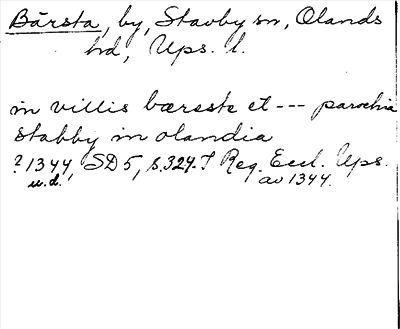 Bärsta, by, Stavby sn, Olands
hd, Ups. l.
in villis bærsste et --- parochia
stabby in olandia
? 1344, SD 5, s. 327. I Reg. Eccl. Ups.
u.d. av 1344.